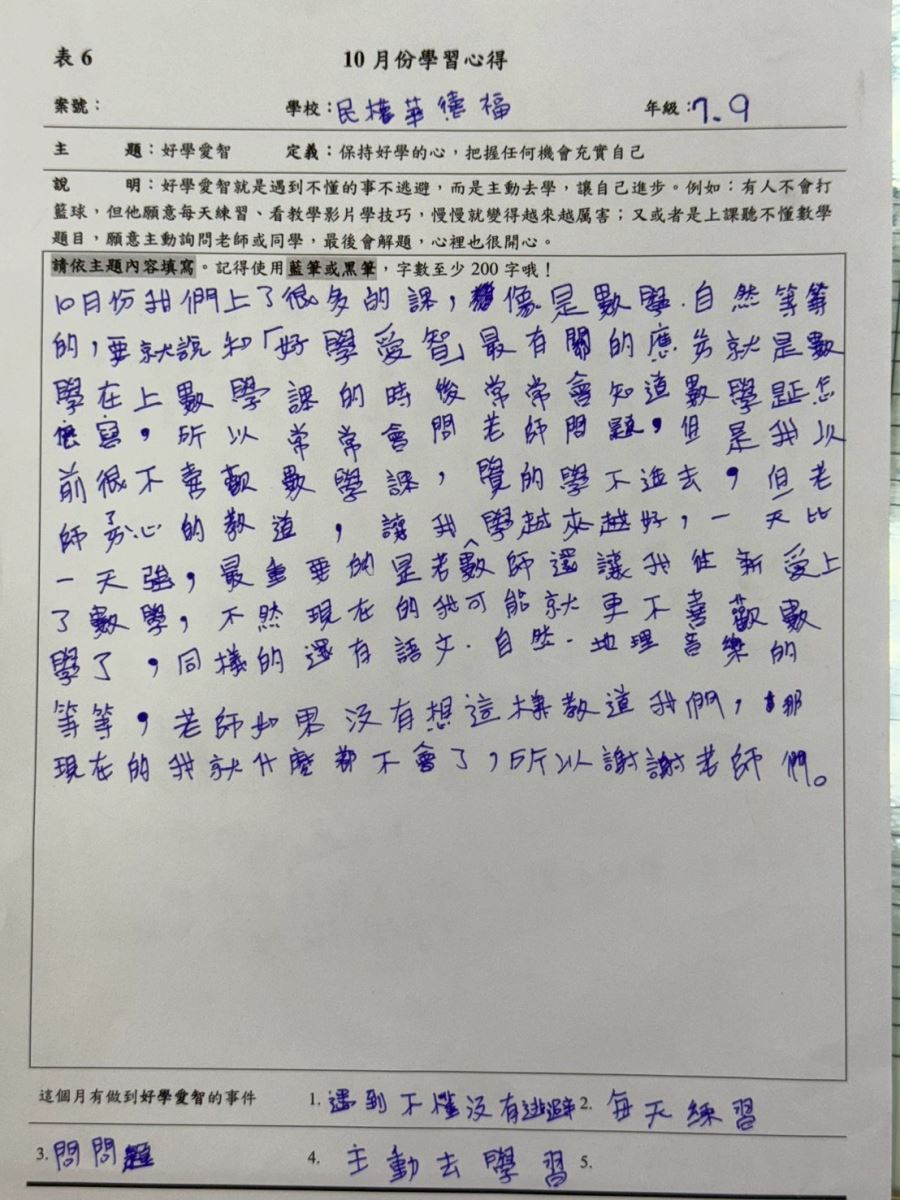 表 6
10 月份學習心得
案號：
學校：民權華德福
年級：7.9
主　題：好學愛智　定義：保持好學的心，把握任何機會充實自己
說　明：好學愛智就是遇到不懂的事不逃避，而是主動去學，讓自己進步。例如：有人不會打
籃球，但他願意每天練習、看教學影片學技巧，慢慢就變得越來越厲害；又或者是上課聽不懂數學
題目，願意主動詢問老師或同學，最後會解題，心裡也很開心。
請依主題內容填寫。記得使用藍筆或黑筆，字數至少 200 字哦！
10月份我們上了很多的課，像是數學.自然等等
的，要就說和「好學愛智」最有關的應為就是數
學在上數學課的時後常常會知道數學題怎
麼寫，所以常常會問老師問題，但是我以
前很不喜歡數學課，覺的學不進去，但老
師用心的教道，讓我學越來越好，一天比
一天強，最重要的是老數師還讓我從新愛上
了數學，不然現在的我可能就更不喜歡數
學了，同樣的還有語文.自然.地理音樂的
等等，老師如果沒有想這樣教道我們，那
現在的我就什麼都不會了，所以謝謝老師們。
這個月有做到好學愛智的事件
1. 遇到不懂沒有逃避
2. 每天練習
3. 問問題
4. 主動去學習
5.